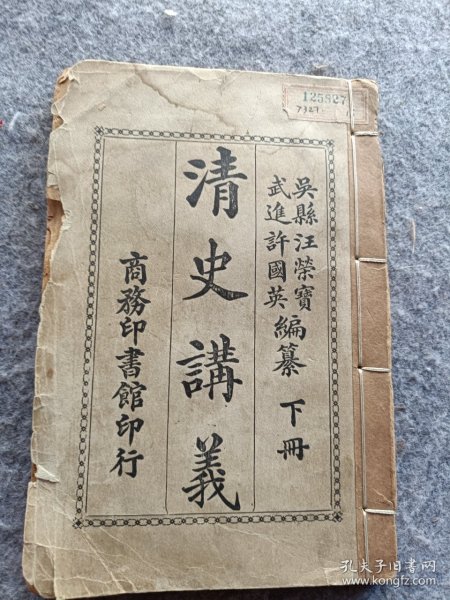 125827
7327
吳縣汪榮寶
武進許國英
編纂
下冊
清史講義
商務印書館印行
孔夫子旧书网
www.kongfz.com